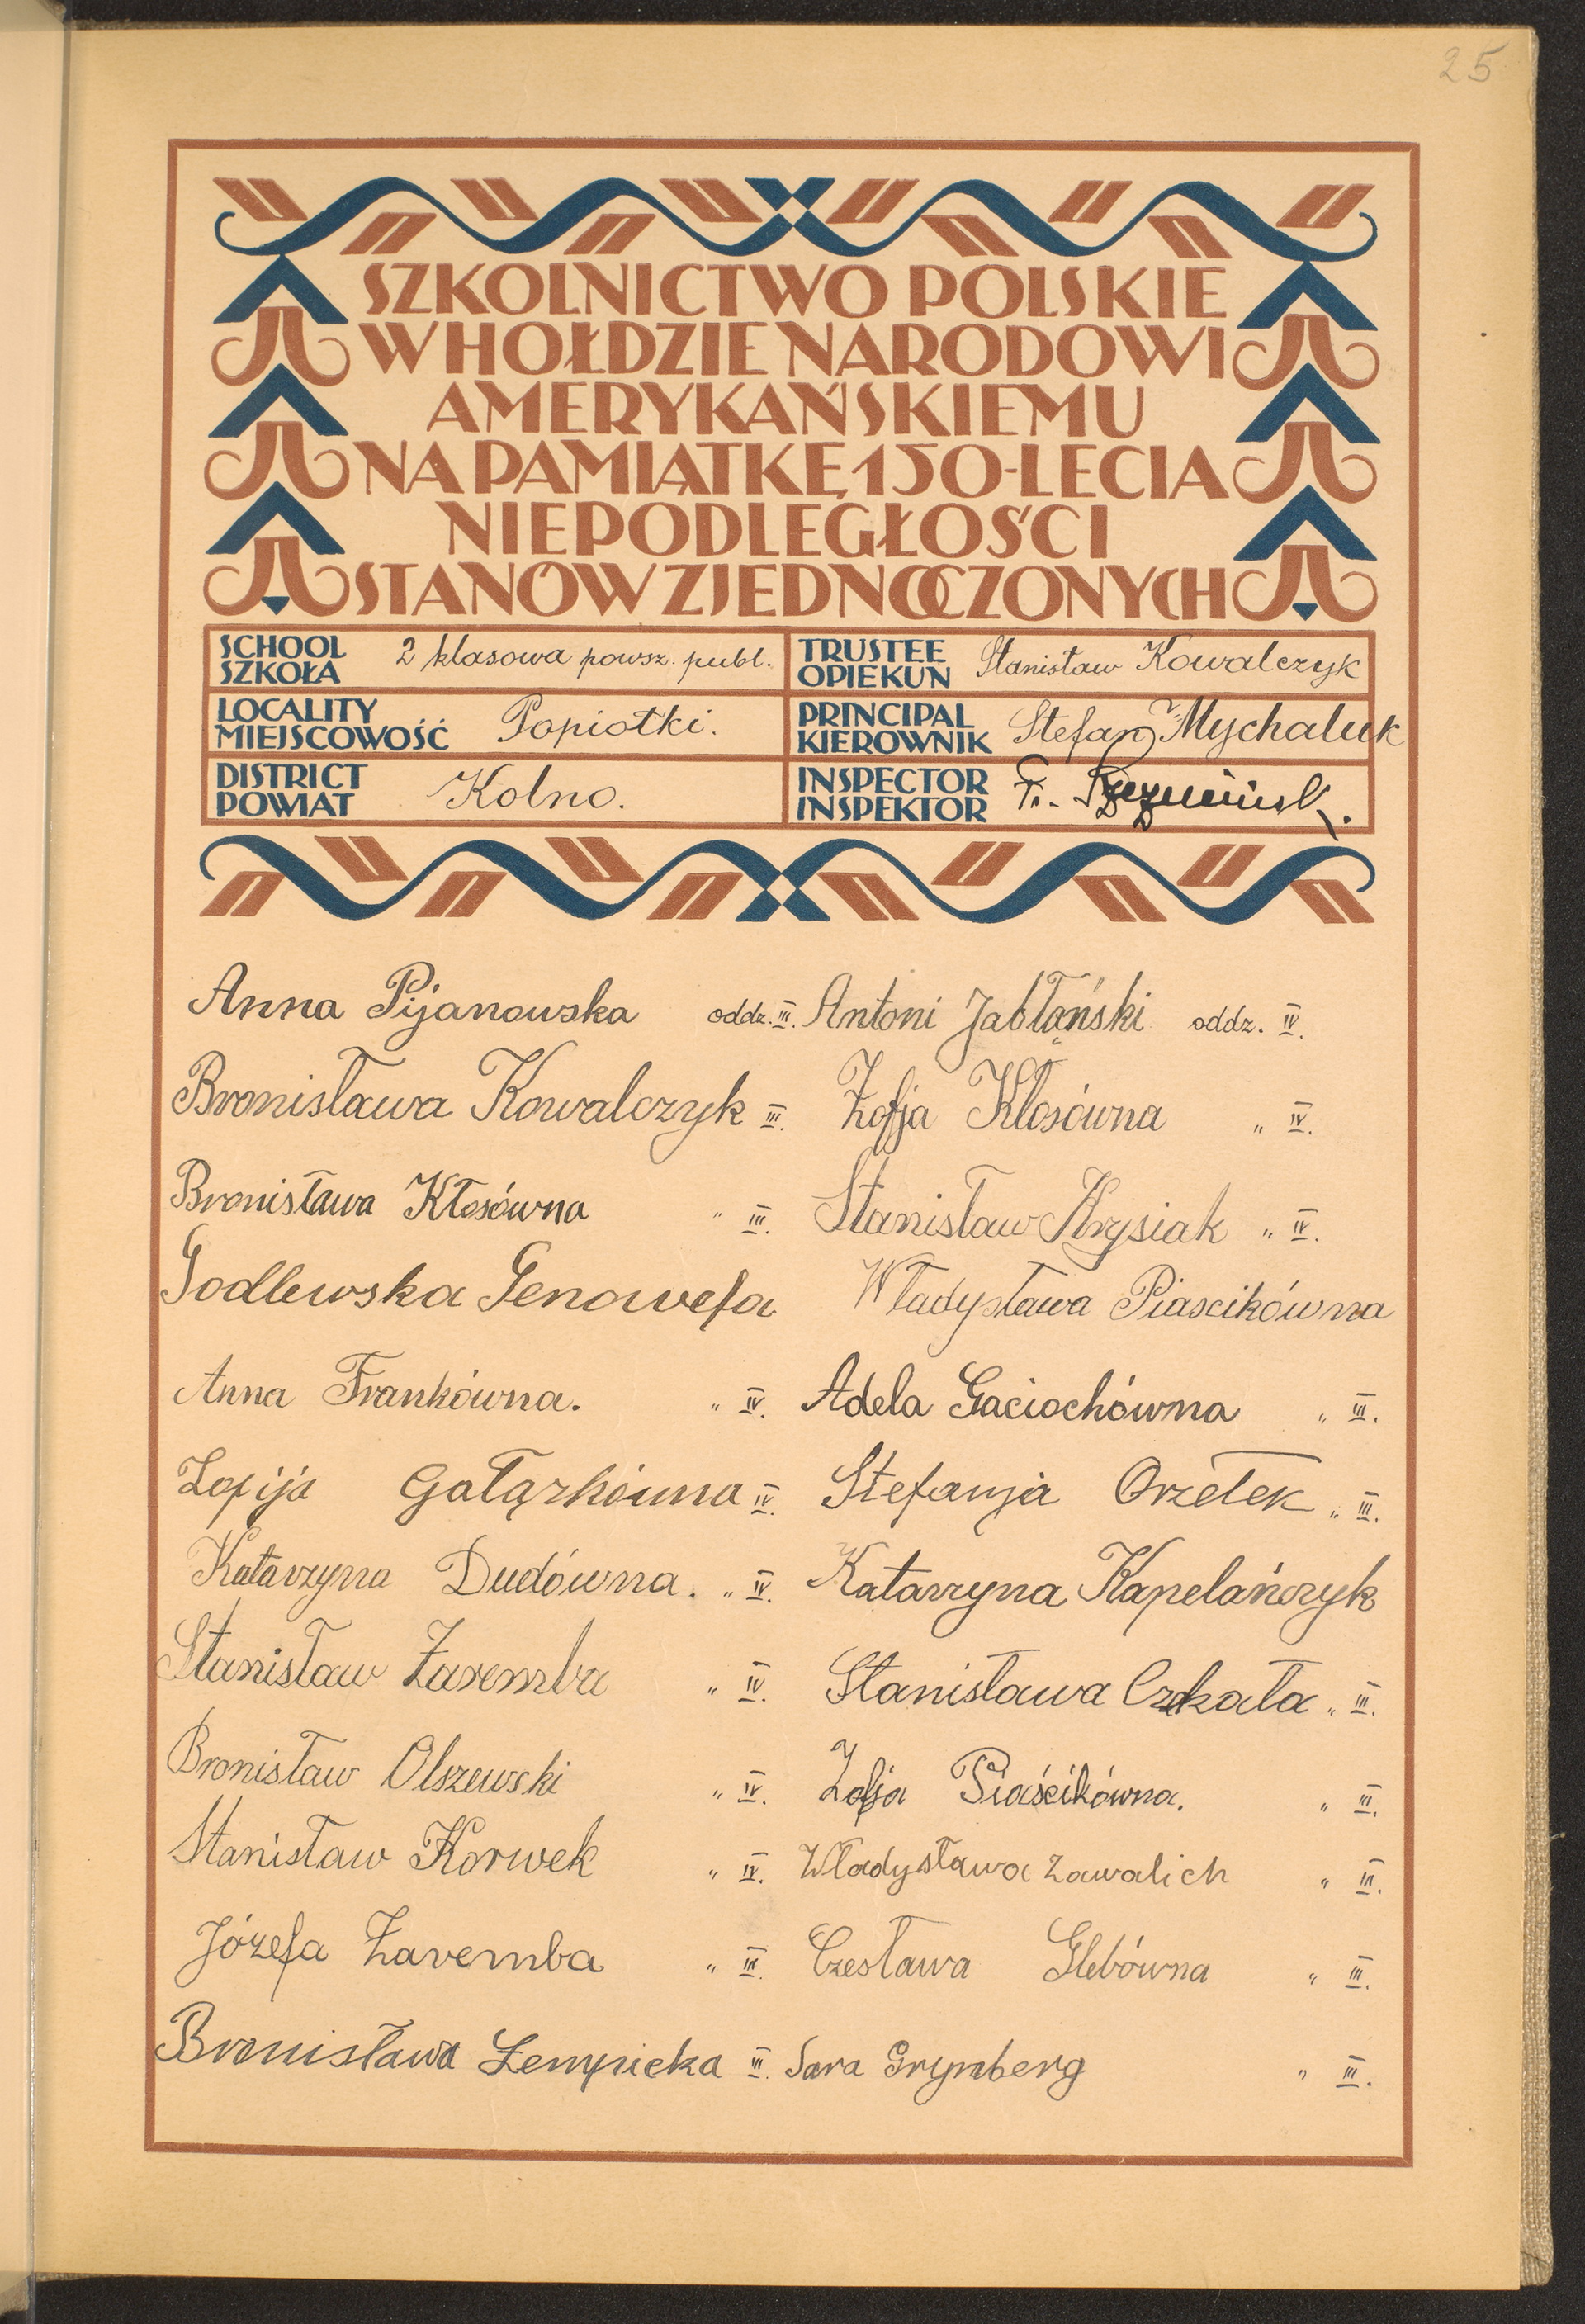 25
SZKOLNICTWO POLSKIE
W HOŁDZIE NARODOWI
AMERYKAŃSKIEMU
NA PAMIĄTKĘ 150-LECIA
NIEPODLEGŁOŚCI
STANÓW ZJEDNOCZONYCH
SCHOOL
SZKOŁA
2 klasowa powsz. publ.
TRUSTEE
OPIEKUN
Stanisław Kowalczyk
LOCALITY
MIEJSCOWOŚĆ
Popiołki.
PRINCIPAL
KIEROWNIK
Stefan Mychaluk
DISTRICT
POWIAT
Kolno.
INSPECTOR
INSPEKTOR
Fr.
Anna Pijanowska oddz. III. Antoni Jabłąński oddz. IV.
Bronisława Kowalczyk III. Zofja Kłosówna " IV.
Bronisława Kłosówna " III. Stanisław Krysiak " IV.
Godlewska Genowefa Władysława Piascikówna
Anna Frankówna. " IV. Adela Gaciochówna " III.
Zofija Gałązkówna IV. Stefanja Orzełek " III.
Katarzyna Dudówna. " IV. Katarzyna Kapelańczyk
Stanisław Zaremba " IV. Stanisława Czekała " III.
Bronisław Olszewski " IV. Zofja Piaścikówna. " III.
Stanisław Korwek " IV. Władysława Zawalich " III.
Józefa Zaremba " III. Czesława Glebówna " III.
Bronisława Łempicka III. Sara Grynberg " III.